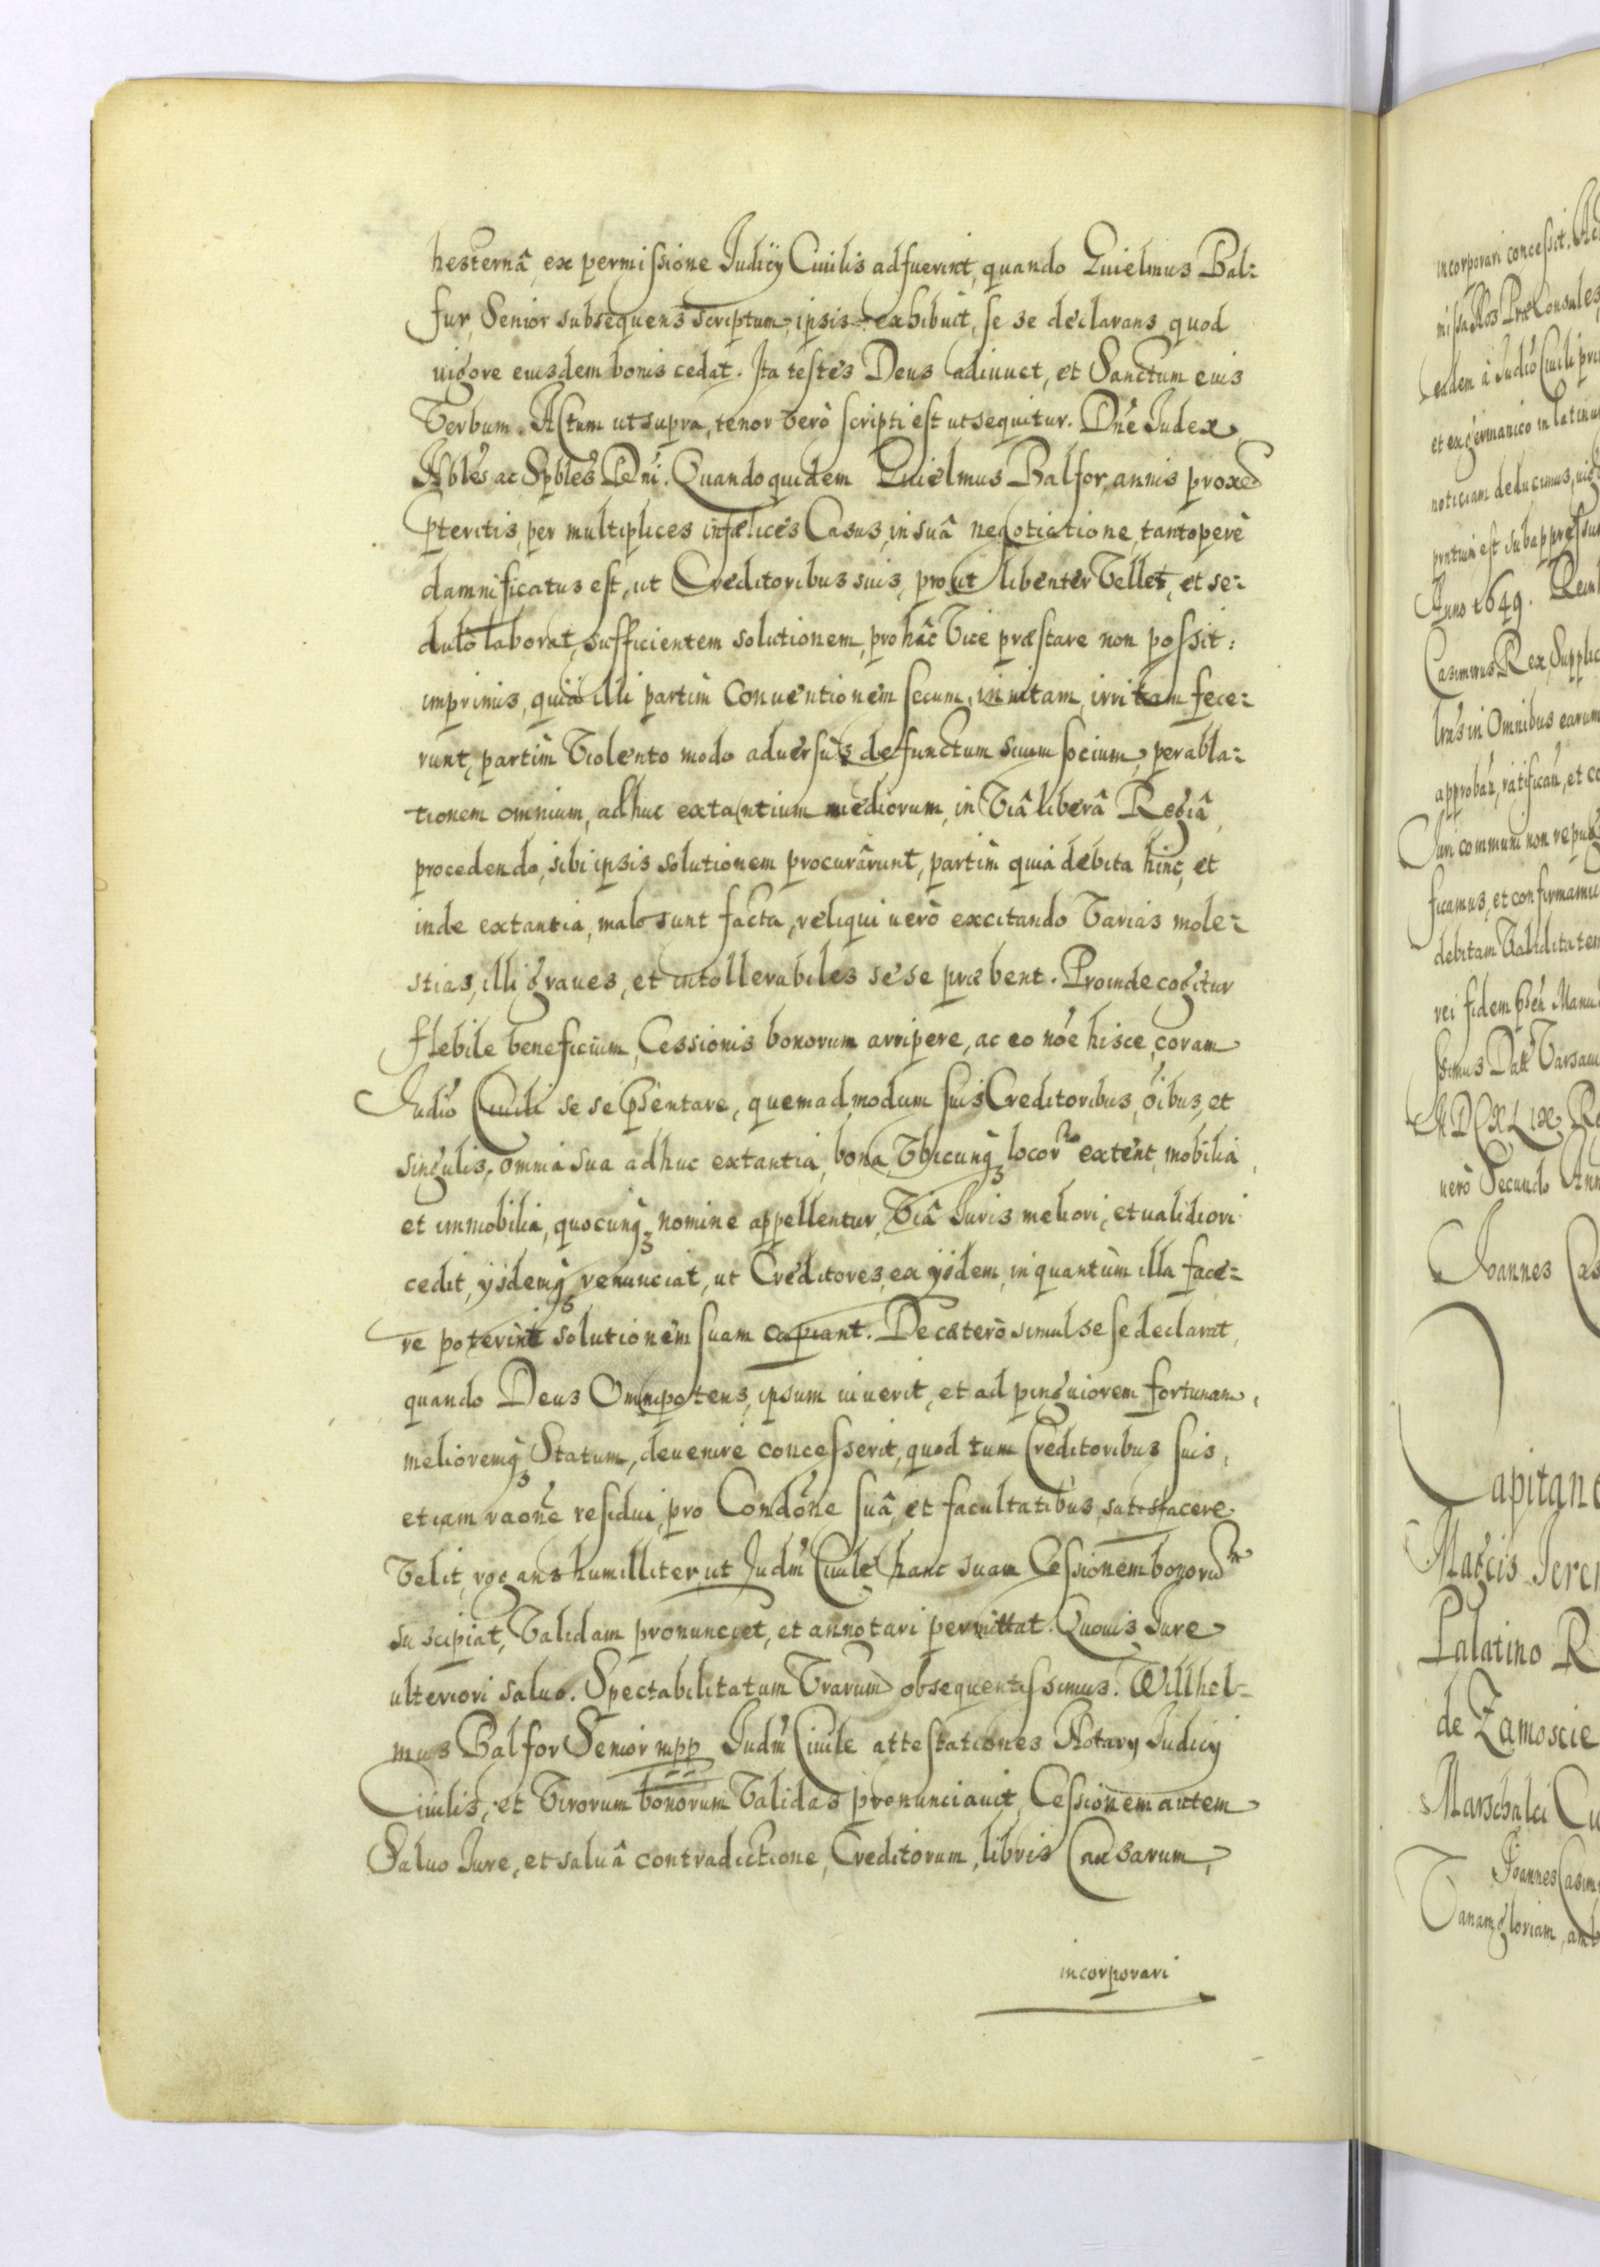 hesternâ ex permissione Judicÿ Ciuilis adfuerint, quando Guielmus Bal-
fur, Senior subsequens scriptum, ipsis exhibuit, se se declarans, quod
uigore eiusdem bonis cedat. Ita testes Deus adiuuet, et Sanctum eius
Verbum. Actum ut supra, tenor verò scripti est ut sequitur. Dn̄e Judex
Nbles ac Spbles Dn̄i. Quandoquidem Guielmus Balfor, annis prox̄e
pteritis, per multiplices infælices Casus, in suâ negotiatione, tantoperè
damnificatus est, ut Creditoribus suis, prout libenter Vellet, et se-
dulò laborat, sufficientem solutionem, pro hâc Vice præstare non possit:
imprimis, quia illi partim Conuentionem secum, initam, irritam fece-
runt, partim Violento modo aduersùs defunctum suum socium, per abla-
tionem omnium, adhuc extantium mediorum, in Viâ liberâ Regiâ,
procedendo, sibi ipsis solutionem procurârunt, partim quia debita hinc, et
inde extantia, malo sunt facta, reliqui uerò excitando Varias mole-
stias, illi graues, et intollerabiles se se præbent. Proinde cogitur
flebile beneficium, Cessionis bonorum arripere, ac eo nōe hisce, coram
Judīo Ciuili se se p̄sentare, quemadmodum suis Creditoribus, ōibus, et
singulis, omnia sua adhuc extantia, bona, Vbicunq3 locor̄ extent, mobilia,
et immobilia, quocunq3 nomine appellentur, Viâ Juris meliori, et ualidiori
cedit, ÿsdemq3 renunciat, ut Creditores, ex ÿsdem, in quantùm illa face-
re poterint solutionem suam capiant. De cætero simul se se declarat,
quando Deus Omnipotens, ipsum iuuerit, et ad pinguiorem fortunam,
melioremq3 Statum, deuenire concesserit, quod tum Creditoribus suis,
etiam rāone residui, pro Condōne suâ, et facultatibus, satisfacere
Velit, rogans humilliter, ut Judm̄ Ciuile hanc suam Cessionem bonorūm
suscipiat, Validam pronunciet, et annotari permittat. Quouis Jure
ulteriori saluo. Spectabilitatum Vrarum obsequentissimus. Willhel-
mus Balfor Senior mpp Judm̄ Ciuile attestationes Notarÿ Judicÿ
Ciuilis, et Virorum bonorum Validas pronunciauit, Cessionem autem
Saluo Jure, et saluâ contradictione, Creditorum, libris Causarum,
incorporari
incorporari concessit.
missa Nos Præconsules,
eadem à Judīo Ciuili
et ex germanico in latinum
noticiam deducimus,
Anno 1649.
Casimirus Rex, Supplic
in Omnibus earum
approban, ratifican, et co
Juri communi non repug
ficamus, et confirmamus
debitam Validitatem
rei fidem
ssimus Dat Varsaui
MDCXLIX
uerò Secundo Ann
Joannes Cas
Capitane
Palatino R
de Zamoscie
Marschalci Cu
Joannes Casim
Vanam gloriam,